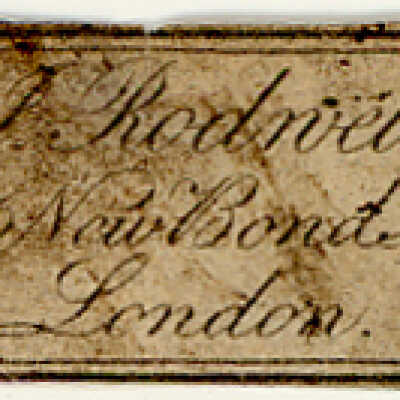 J. Rodwell
New Bond
London.